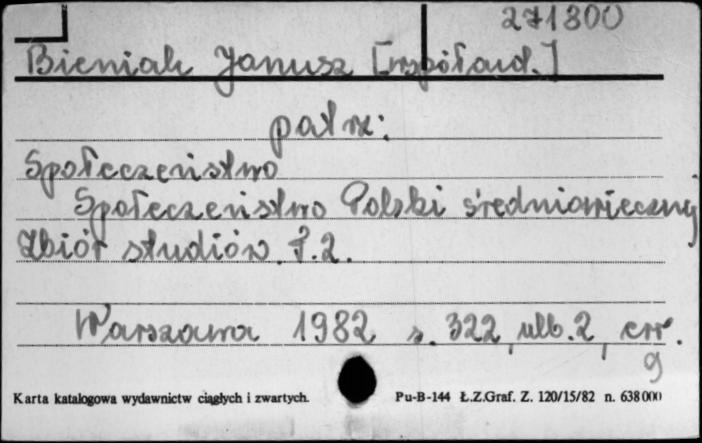 271800
Bieniak Janusz [współaut.]
patrz:
Społeczeństwo
Społeczeństwo Polski średniowiecznej
Zbiór studiów. T.2.
Warszawa 1982 s. 322, ulb. 2,
9
Karta katalogowa wydawnictw ciągłych i zwartych.
Pu-B-144 Ł.Z.Graf. Z. 120/15/82 n. 638000